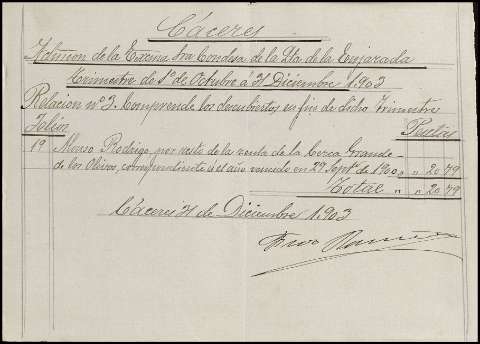 Cáceres
Admon de la Excma Sra Condesa de la Qta. de la Enjarada
Trimestre de 1º de Octubre á 31 Diciembre 1.903
Relacion nº 3. Comprende los descubiertos en fin de dicho Trimestre
Folios Pesetas
19 Alonso Rodrigo, por resto de la renta de la Cerca Grande
de los Olivos, correspondiente á el año vencido en 29 Sept. de 1900 " " 20 79
Total " " 20 79
Cáceres 31 de Diciembre 1.903